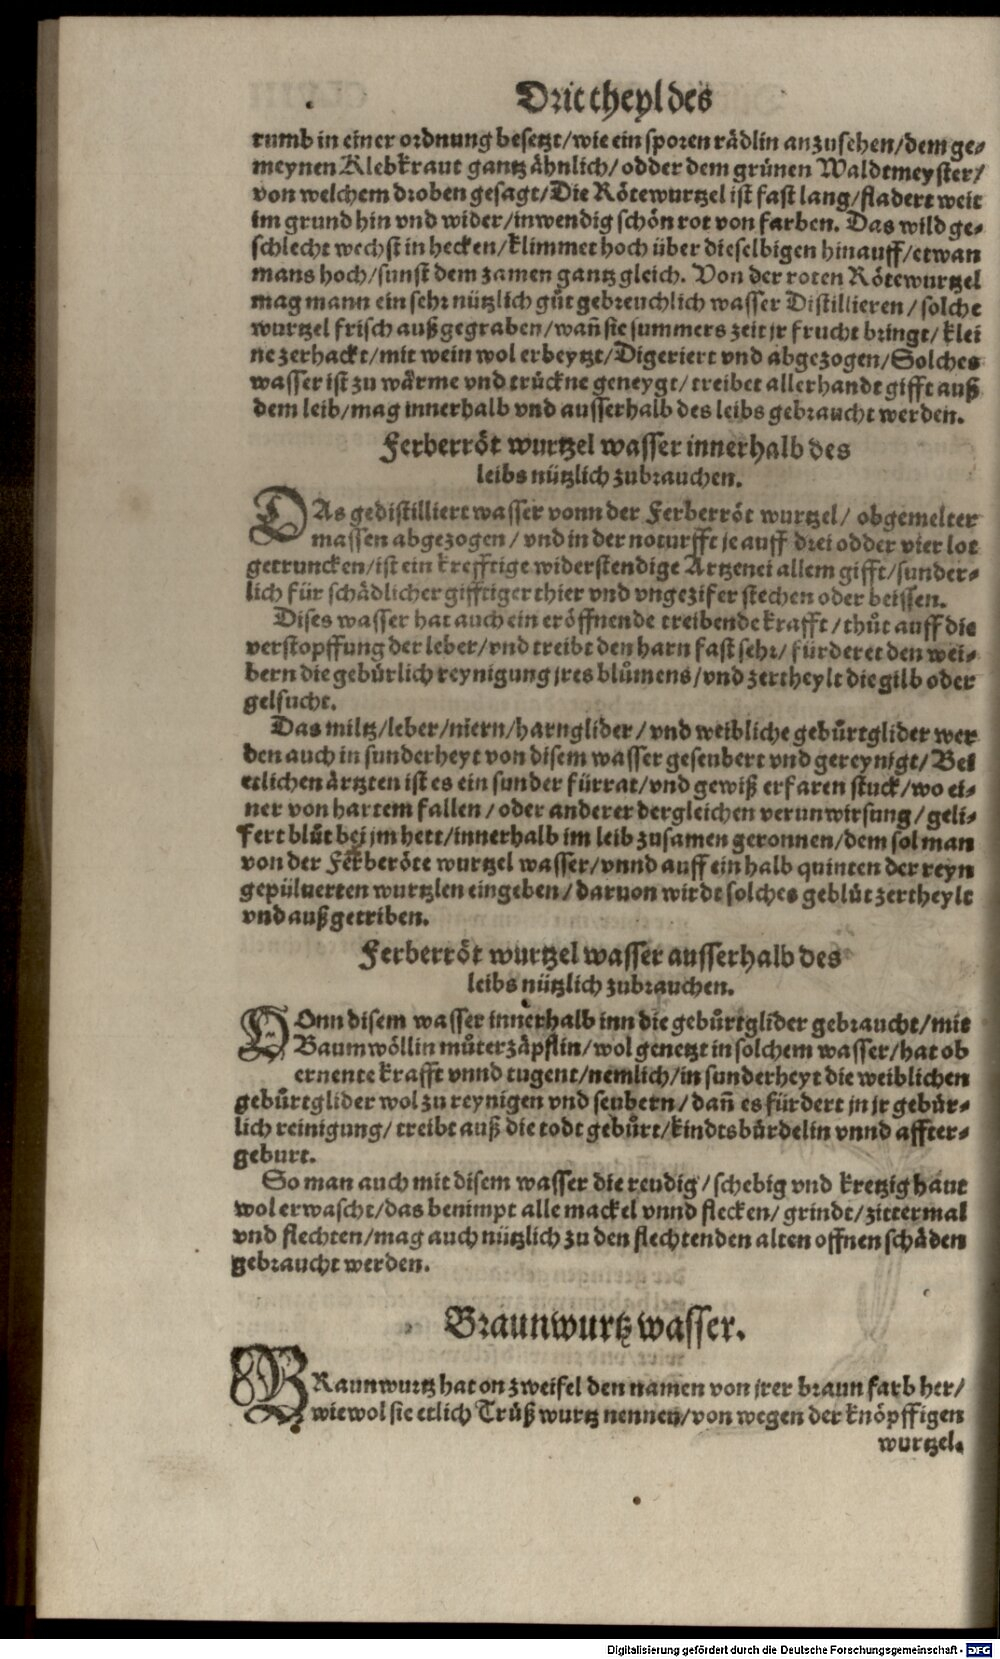 Drit theyl des
rumb in einer ordnung besetzt/wie ein sporen rädlin anzusehen/dem ge-
meynen Klebkraut gantz ähnlich/odder dem grünen Waldtmeyster/
von welchem droben gesagt/Die Rötewurtzel ist fast lang/fladert weit
im grund hin vnd wider/inwendig schön rot von farben. Das wild ge-
schlecht wechst in hecken/klimmet hoch über dieselbigen hinauff/etwan
mans hoch/sunst dem zamen gantz gleich. Von der roten Rötewurtzel
mag mann ein sehr nützlich gůt gebreuchlich wasser Distillieren/solche
wurtzel frisch außgegraben/wañ sie summers zeit jr frucht bringt/klei
ne zerhackt/mit wein wol erbeytzt/Digeriert vnd abgezogen/Solches
wasser ist zu wärme vnd trückne geneygt/treibet allerhandt gifft auß
dem leib/mag innerhalb vnd ausserhalb des leibs gebraucht werden.
Ferberröt wurtzel wasser innerhalb des
leibs nützlich zubrauchen.
DAs gedistilliert wasser vonn der Ferberröt wurtzel/obgemelter
massen abgezogen/vnd in der noturfft je auff drei odder vier lot
getruncken/ist ein krefftige widerstendige Artzenei allem gifft/sunder-
lich für schädlicher gifftiger thier vnd vngezifer stechen oder beissen.
Dises wasser hat auch ein eröffnende treibende krafft/thůt auff die
verstopffung der leber/vnd treibt den harn fast sehr/fürderet den wei-
bern die gebürlich reynigung jres blůmens/vnd zertheylt die gilb oder
gelsucht.
Das miltz/leber/niern/harnglider/vnd weibliche gebůrtglider wer
den auch in sunderheyt von disem wasser geseubert vnd gereynigt/Bei
etlichen ärtzten ist es ein sunder fürrat/vnd gewiß erfaren stuck/wo ei-
ner von hartem fallen/oder anderer dergleichen verunwirsung/geli-
fert blůt bei jm hett/innerhalb im leib zusamen geronnen/dem sol man
von der Ferberöte wurtzel wasser/vnnd auff ein halb quinten der reyn
gepülverten wurtzlen eingeben/daruon wirdt solches geblůt zertheylt
vnd außgetriben.
Ferberröt wurtzel wasser ausserhalb des
leibs nützlich zubrauchen.
VOnn disem wasser innerhalb inn die gebůrtglider gebraucht/mit
Baumwöllin můterzäpflin/wol genetzt in solchem wasser/hat ob
ernente krafft vnnd tugent/nemlich/in sunderheyt die weiblichen
gebůrtglider wol zu reynigen vnd seubern/dañ es fürdert jn jr gebür-
lich reinigung/treibt auß die todt gebůrt/kindtsbürdelin vnnd affter-
geburt.
So man auch mit disem wasser die reudig/schebig vnd kretzig haut
wol erwascht/das benimpt alle mackel vnnd flecken/grindt/zittermal
vnd flechten/mag auch nützlich zu den flechtenden alten offnen schäden
gebraucht werden.
Braunwurtz wasser.
BRaunwurtz hat on zweifel den namen von jrer braun farb her/
wiewol sie etlich Trüßwurtz nennen/von wegen der knöpffigen
wurtzel.
Digitalisierung gefördert durch die Deutsche Forschungsgemeinschaft - DFG